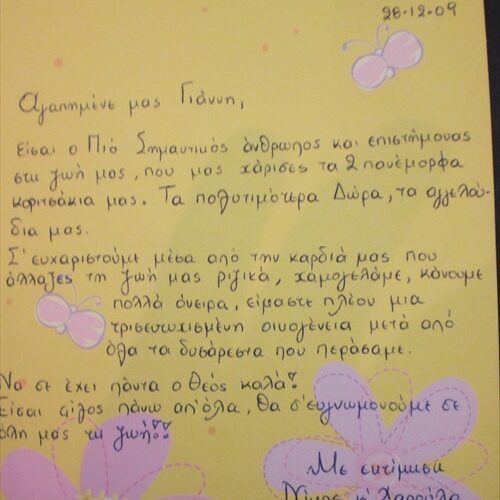 28-12-09
Αγαπημένε μας Γιάννη,
Είσαι ο Πιό Σημαντικός άνθρωπος και επιστήμονας
στη ζωή μας, που μας χάρισες τα 2 πανέμορφα
κοριτσάκια μας. Τα πολυτιμότερα Δώρα, τα αγγελά-
δια μας.
Σ' ευχαριστούμε μέσα από την καρδιά μας που
άλλαξες τη ζωή μας ριζικά, χαμογελάμε, κάνουμε
πολλά όνειρα, είμαστε πλέον μια
τρισευτυχισμένη οικογένεια μετά από
όλα τα δυσάρεστα που περάσαμε.
Να σε έχει πάντα ο Θεός καλά!
Είσαι φίλος πάνω απ' όλα, θα σ' ευγνωμονούμε σε
όλη μας τη ζωή!!
Με εκτίμηση